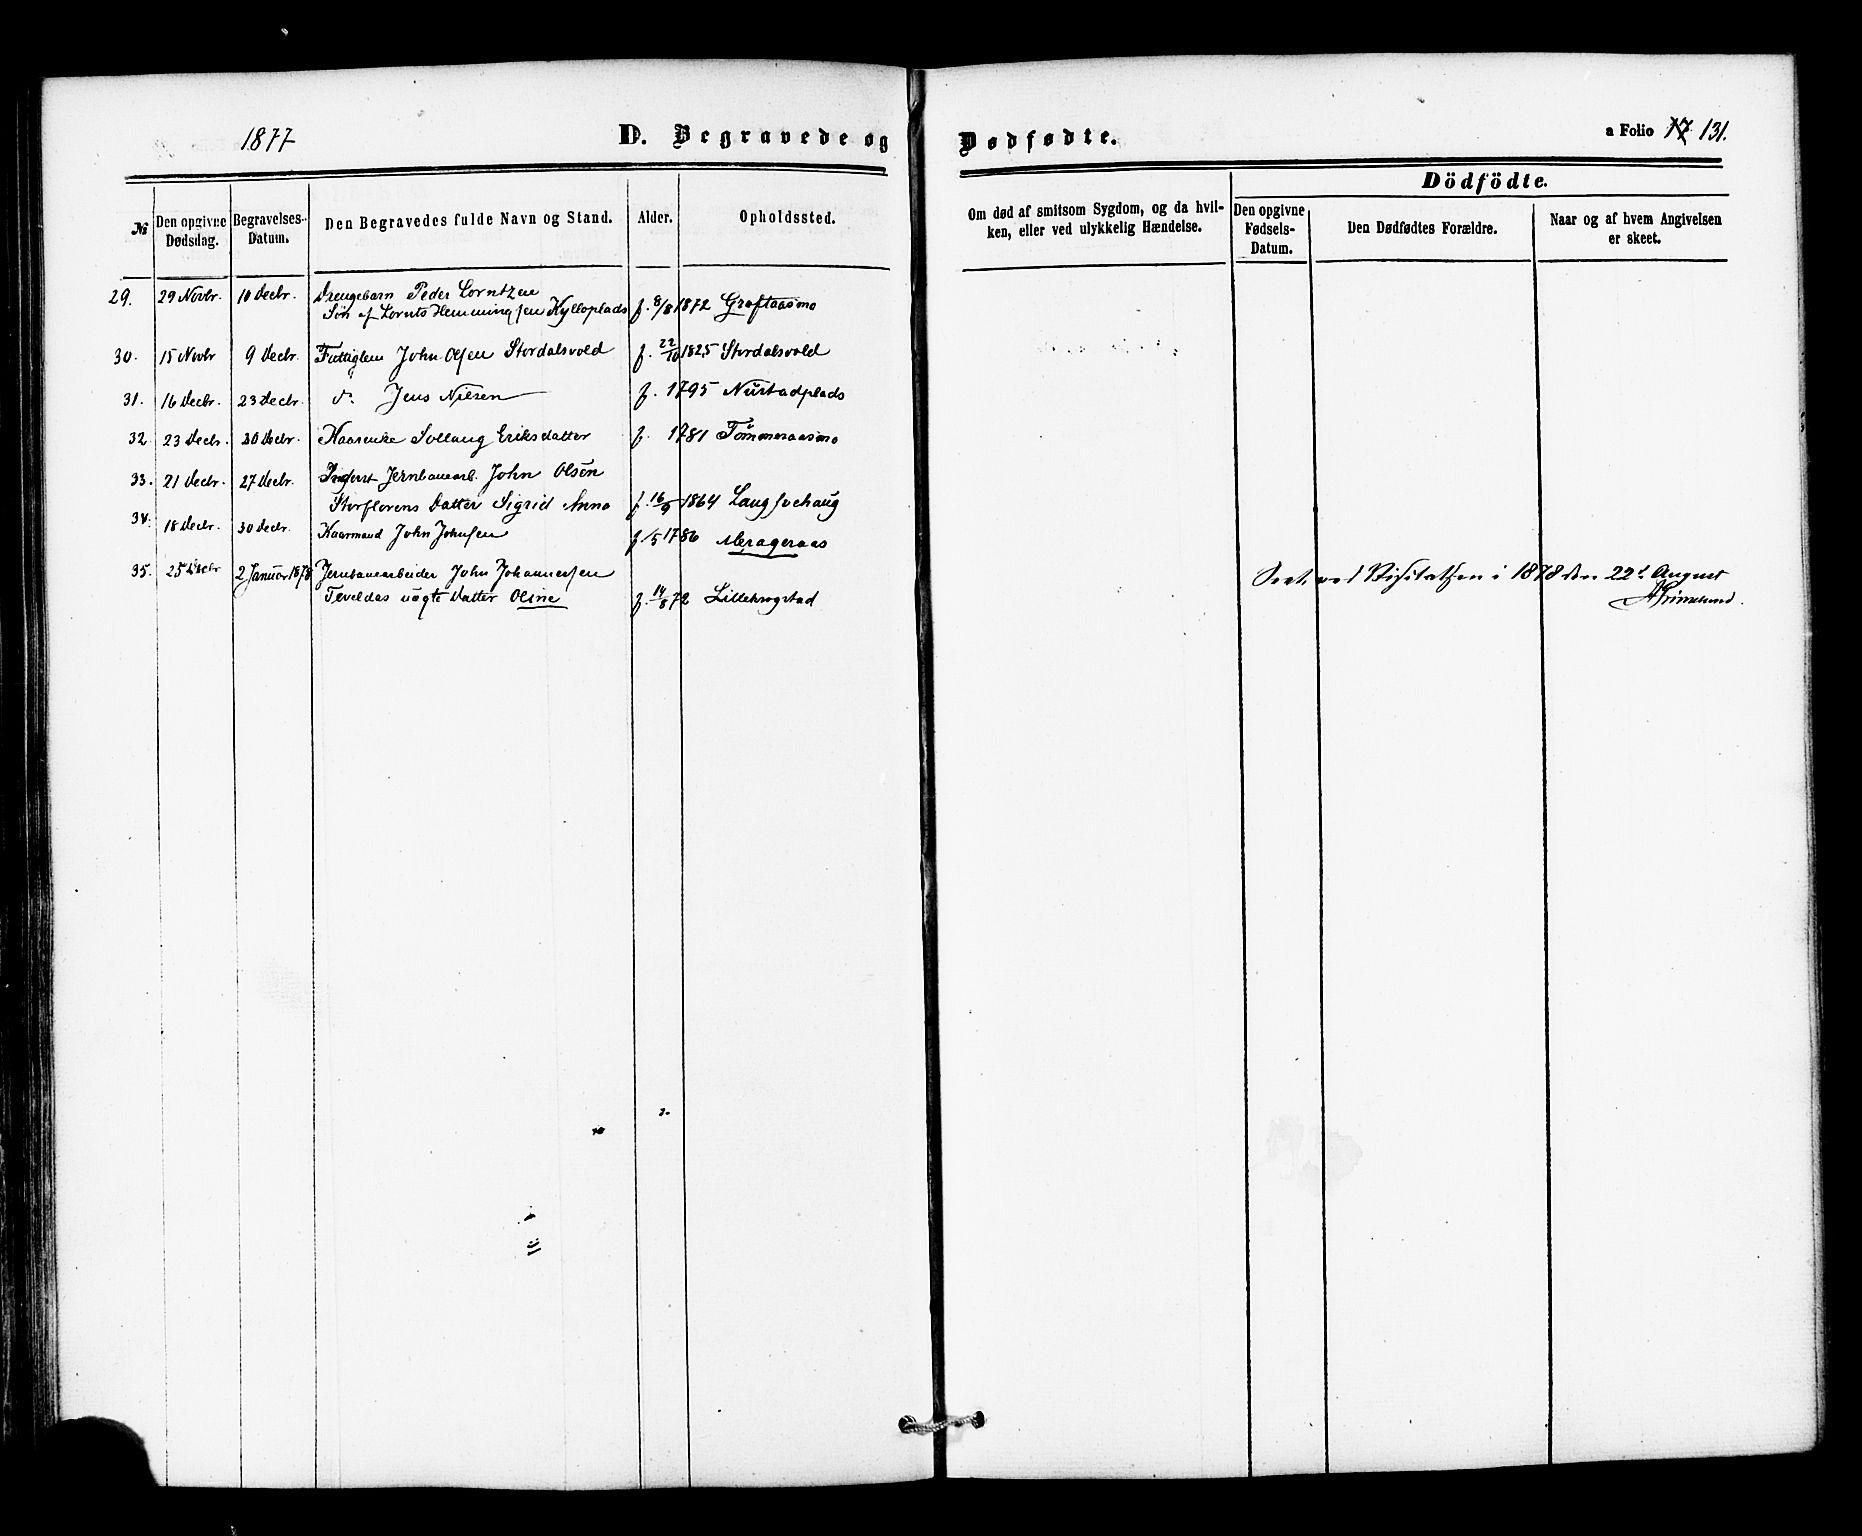 1877
D. Begravede og Dødfødte.
a Folio 17 131.
Dödfödte.
№
Den opgivne Dødsdag.
Begravelses-Datum.
Den Begravedes fulde Navn og Stand.
Alder.
Opholdssted.
Om død af smitsom Sygdom, og da hvil-
ken, eller ved ulykkelig Hændelse.
Den opgivne
Fødsels-
Datum.
Den Dødfødtes Forældre.
Naar og af hvem Angivelsen
er skeet.
29. 29 Novbr. 10 Decbr. Drengebarn Peder Lorntzen
Søn af Lornts Hemmingsen Kylloplads f. 8/8 1872 Grøftaasmo
30. 15 Novbr 9 Decbr. Fattiglem John Olsen Stordalsvold f. 22/10 1825 Stordalsvold
31. 16 Decbr. 23 Decbr. do Jens Nilsen f. 1795 Nustadplads
32. 23 Decbr. 30 Decbr. Kaarenke Sollaug Eriksdatter f. 1781 Tømmeraasmo
33. 21 Decbr. 27 Decbr. Inderst Jernbanearb. John Olsen
Storflorens Datter Sigrid Anna f. 16/9 1864
34. 18 Decbr. 30 Decbr. Kaarmand John Johnsen f. 1/5 1786 Merageraas
35. 25 Decbr 2 Januar 1878 Jernbanearbeider John Johannessen
Teveldas uægte Datter Oline f. 14/8 72 Lillekrogstad
Seet ved Visitatsen i 1878 den 22d August
AGrimelund.